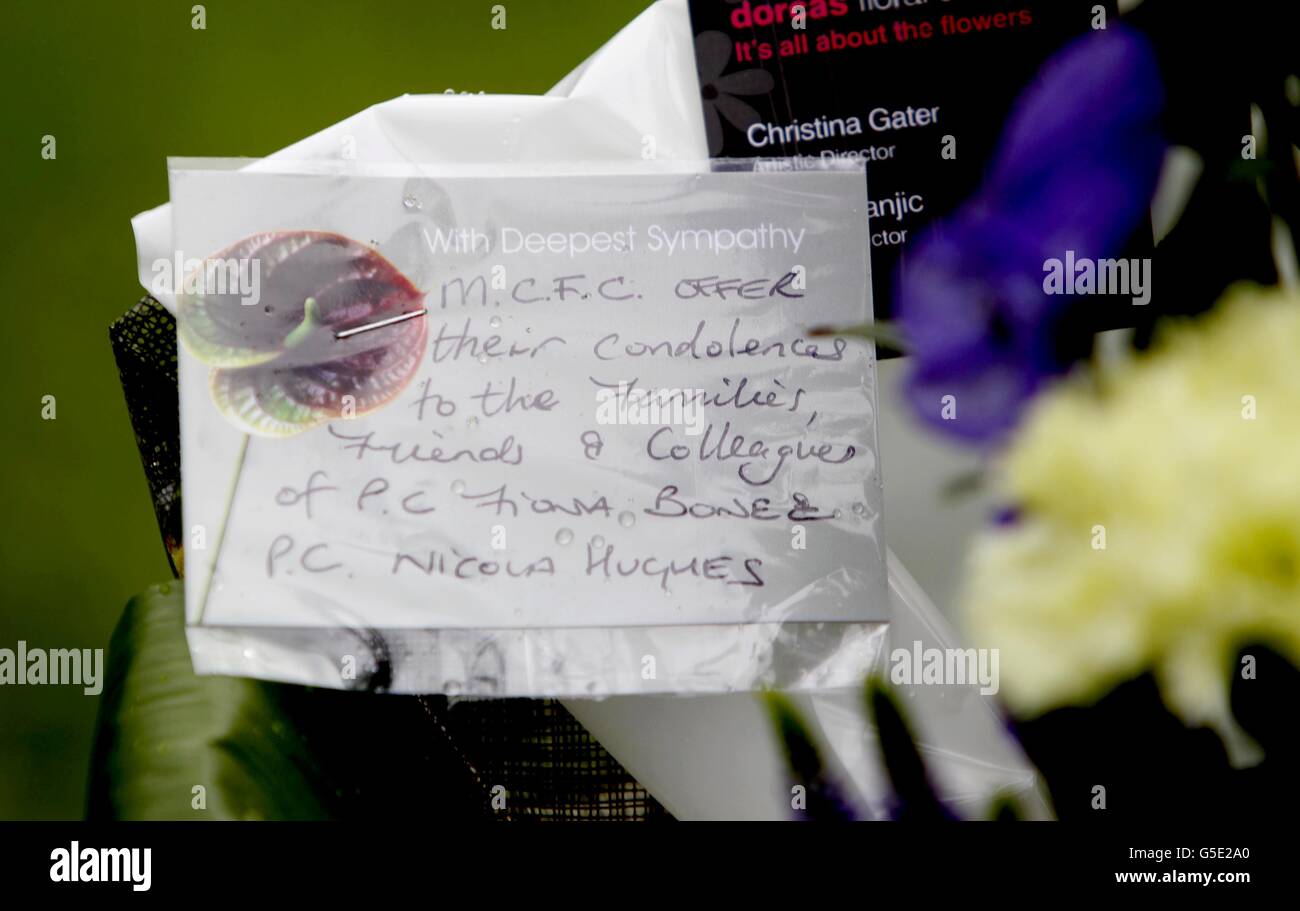 dorsas floral
It's all about the flowers
Christina Gater
Artistic Director
anjic
ctor
With Deepest Sympathy
M.C.F.C. OFFER
their condolences
to the Families,
Friends & Colleagues
of P.C FIONA BONE &
P.C. NICOLA HUGHES
alamy
Image ID: G5E2A0
www.alamy.com